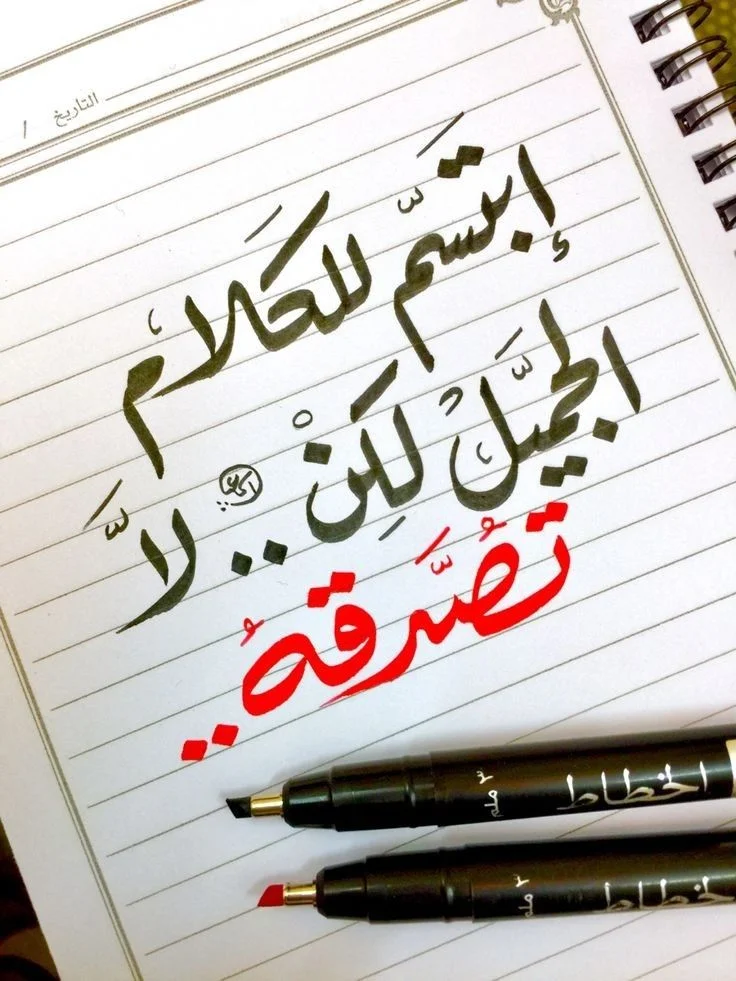 التاريخ /
إبتسمّ للكلام
الجميَّل لكِنْ .. لاَّ
تصُدَّقهُ ..
الخطاط ٣ ملم
الخطاط ٣ ملم